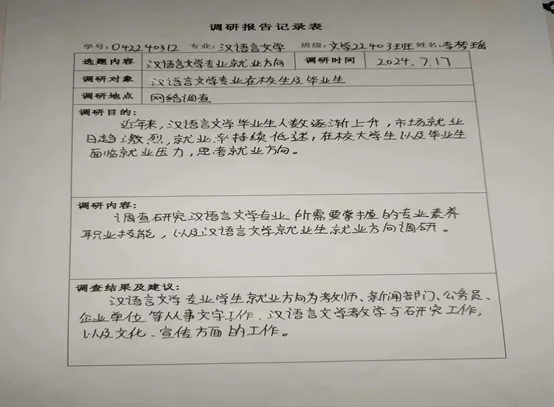 调研报告记录表
学号: 042240312 专业: 汉语言文学 班级: 文学22403班 姓名: 李梦瑶
选题内容 汉语言文学专业就业方向 调研时间 2024.7.17
调研对象 汉语言文学专业在校生及毕业生
调研地点 网络调查
调研目的:
近年来,汉语言文学毕业生人数逐渐上升,市场就业
日趋激烈,就业率持续低迷,在校大学生以及毕业生
面临就业压力,思考就业方向。
调研内容:
调查研究汉语言文学专业所需要掌握的专业素养
职业技能,以及汉语言文学就业生就业方向调研。
调查结果及建议:
汉语言文学专业学生就业方向为教师、新闻部门、公务员、
企业单位等从事文字工作、汉语言文学教学与研究工作,
以及文化、宣传方面的工作。